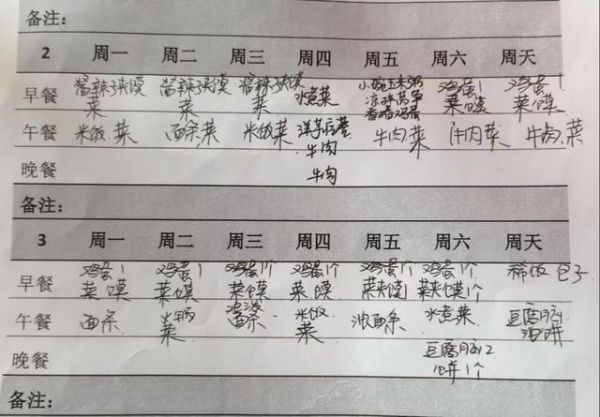 备注：
2 周一 周二 周三 周四 周五 周六 周天
早餐 辣子夹馍 菜 辣子夹馍 菜 辣子夹馍 菜 水煮菜 小碗玉米粥 凉拌莴笋 香椿鸡蛋 鸡蛋1 菜馍 鸡蛋1 菜馍
午餐 米饭 菜 面条,菜 米饭菜 洋芋 牛肉 牛肉菜 牛肉菜 牛肉.菜
晚餐 牛肉
备注：
3 周一 周二 周三 周四 周五 周六 周天
早餐 鸡蛋1 菜馍 鸡蛋1 菜馍 鸡蛋1个 菜馍 鸡蛋1个 菜馍 鸡蛋1个 菜夹馍1 鸡蛋1个 菜夹馍1个 稀饭 包子
午餐 面条 米饭 菜 面条 米饭 菜 油面条 水煮菜 豆腐脑1 油饼
晚餐 豆腐脑2 饼1个
备注：